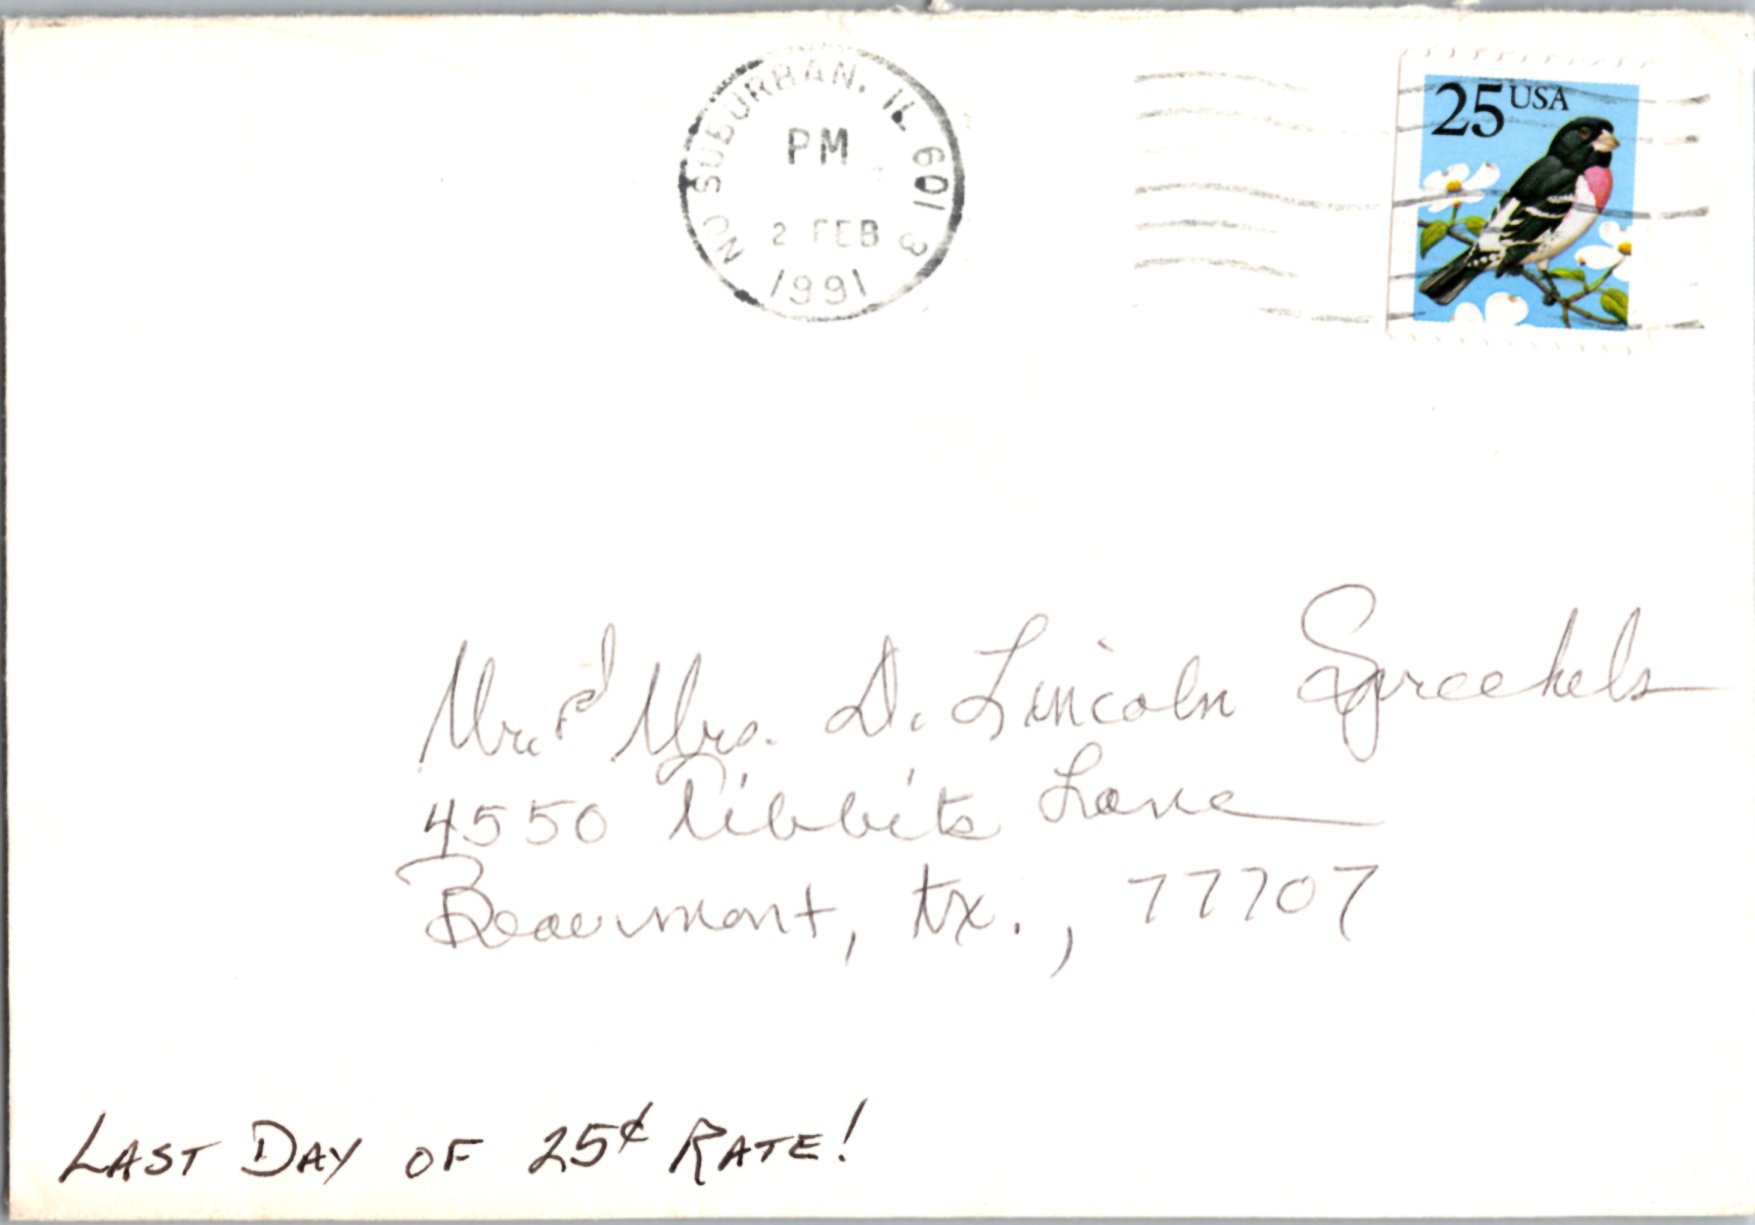 NO SUBURBAN, IL 601 3
PM
2 FEB
1991
25 USA
Mr. & Mrs. D. Lincoln Spreckels
4550 Tibbits Lane
Beaumont, Tx., 77707
LAST DAY OF 25¢ RATE!